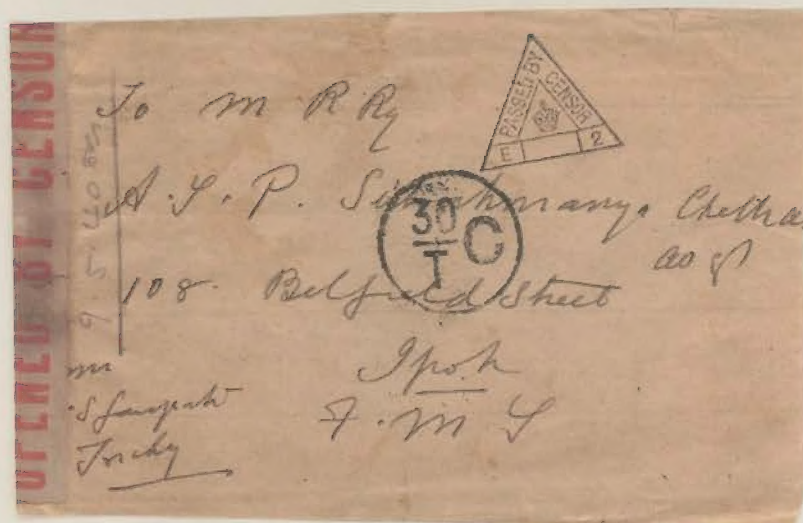 OPENED BY CENSOR
To M R Ry
PASSED BY CENSOR
E 2
A. S. P. Chettiar
30 C
T
108. Belfield Street
Ipoh
F. M S
Trichy
9.5.40